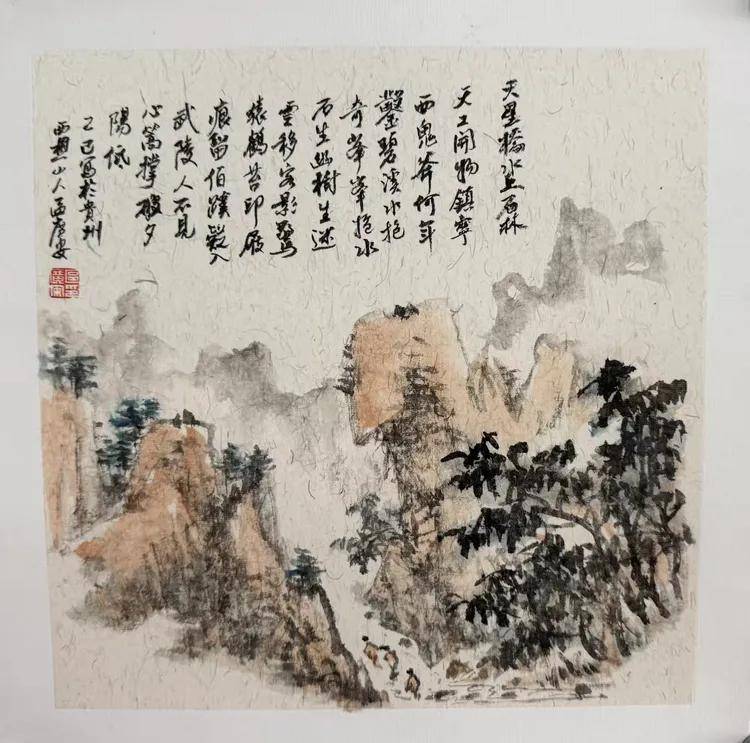 天星橋水上石林
天工開物鎮寧
西鬼斧何年
鑿碧溪水抱
奇峯峯抱水
石生幽樹生迷
雲移客影驚
猿鶴苔印屐
痕留入
武陵人不見
心篙撐破夕
陽低
乙巳寫於貴州
西山人